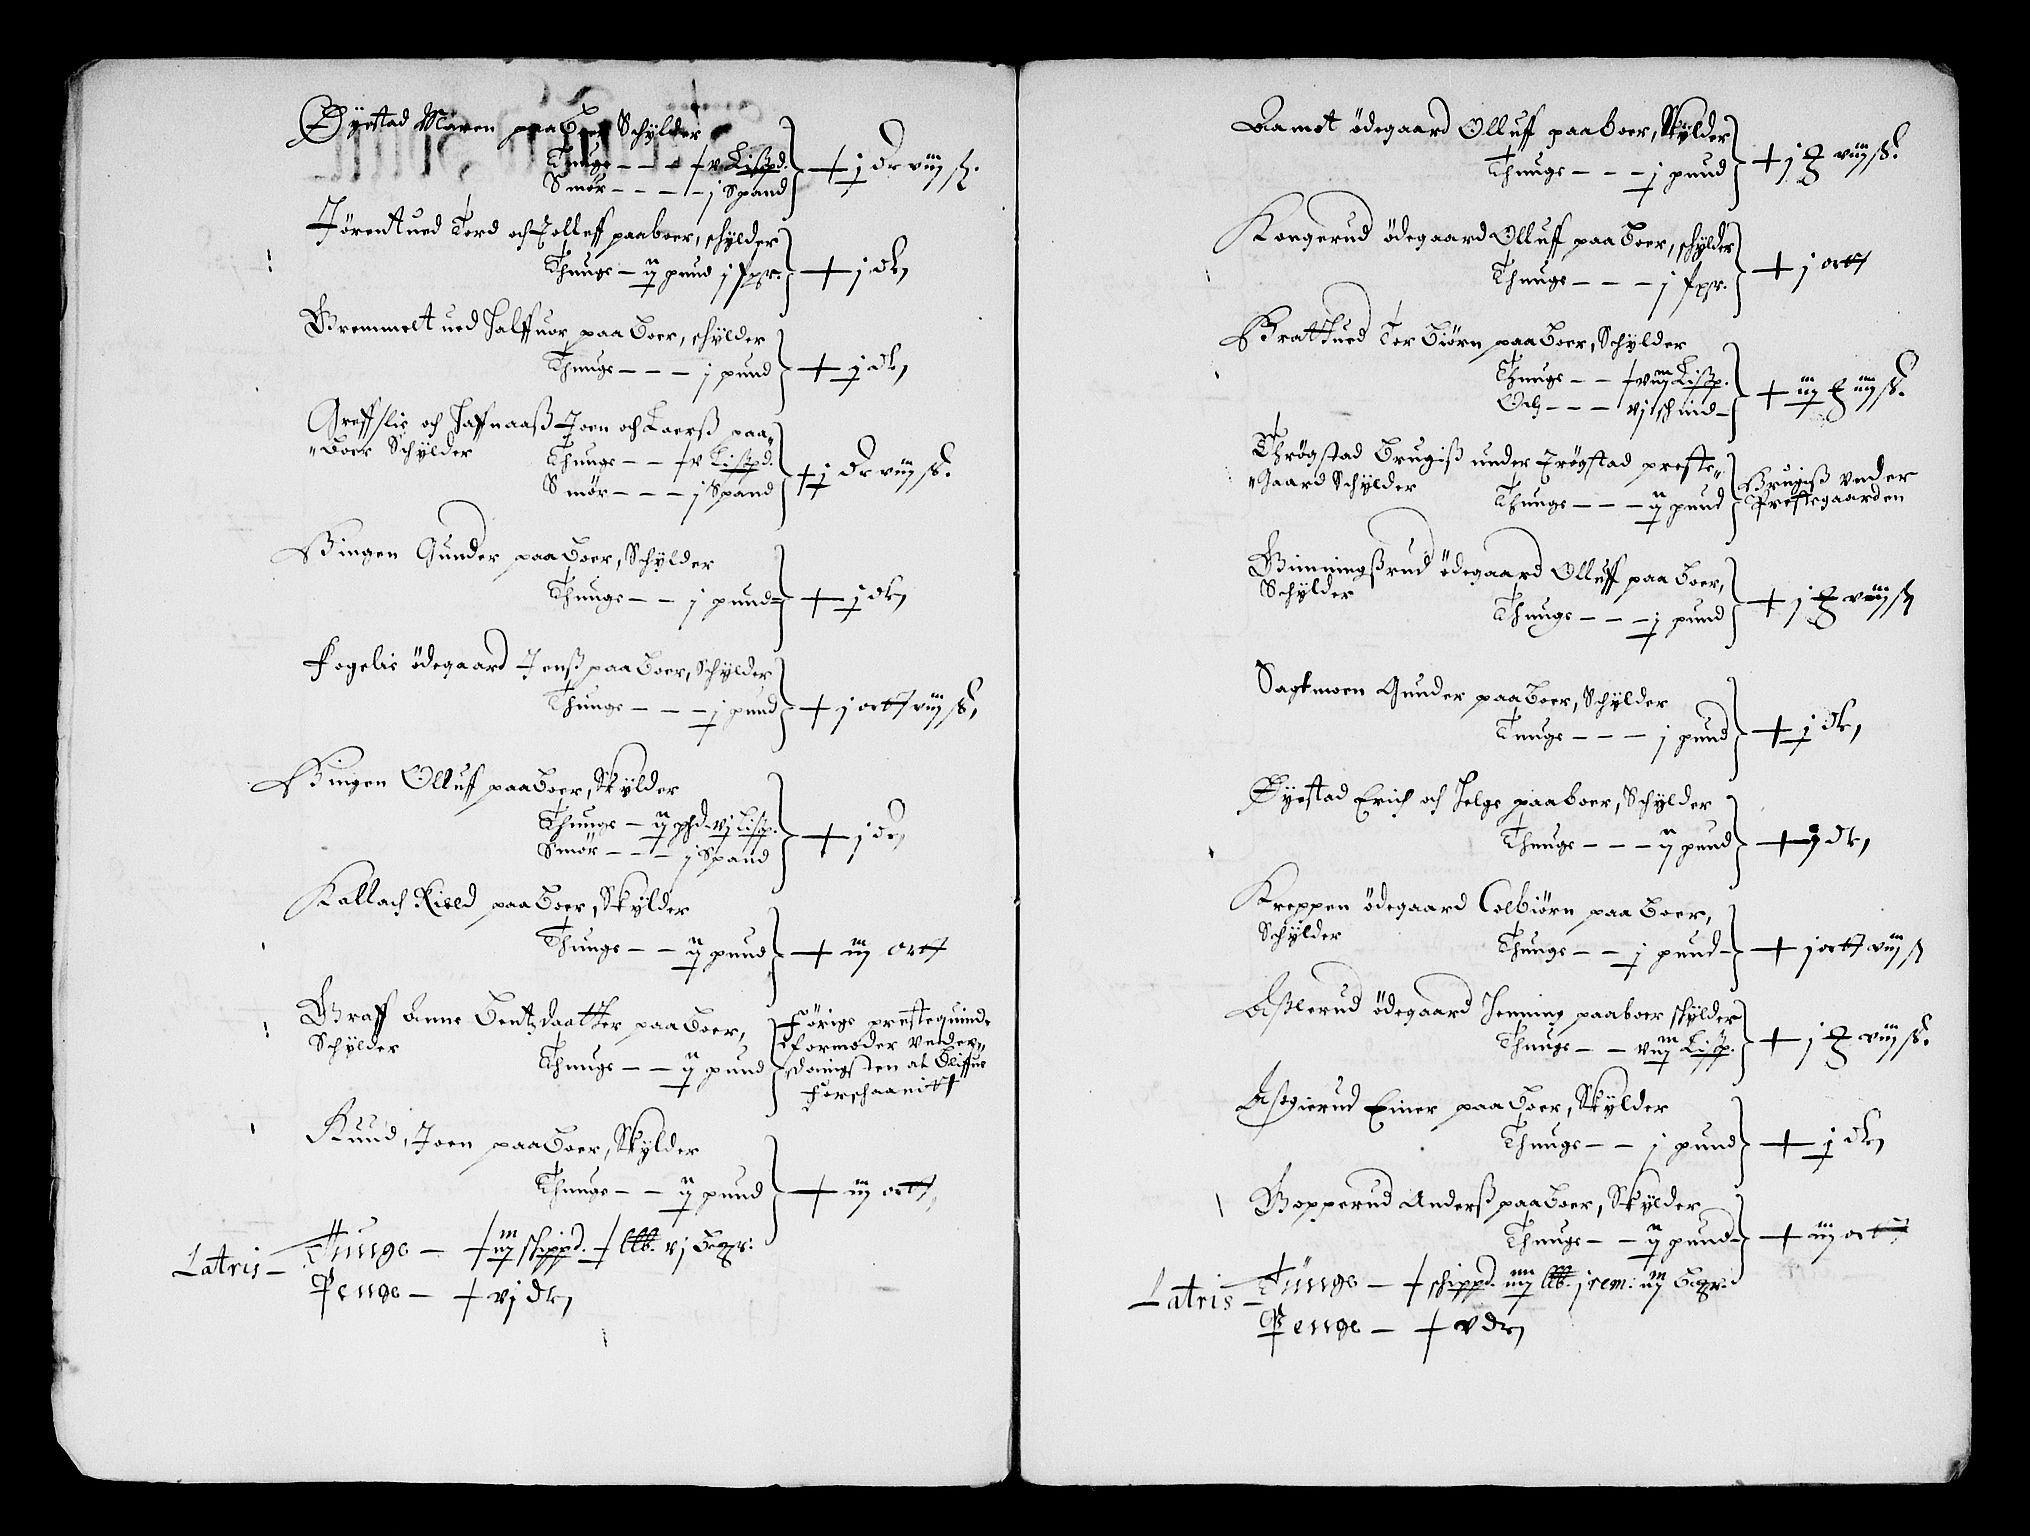 Øÿestad Maren paaboer Schÿlder
Thunge - - - v Lißpd.
Smør - - - - j Spand
+ j dr viij ß.
Jørentued Tord och Jolleff paaboer, schÿlder
Thunge - ij pund j fßr.
+ j dlr
Gremmeltued Halffuor paa boer, schÿlder
Thunge - - - j pund
+ j dlr
Greffslie och Haffnaaß Joen och Laerß paa„
„Boer Schÿlder
Thunge - - v Lißpd.
Smør - - - j Spand
+ j dr viij ß.
Bingen Gunder paa boer, Schÿlder
Thunge - - j pund -
+ j dlr
Fogelie ödegaard Jenß paa boer, Schÿlder
Thunge - - - j pund
+ j ortt viij ß.
Bingen Olluff paaboer, Skÿlder
Thunge - ij phd. vj Lißp.
Smør - - - j Spand
+ j dr
Kallach Kield paa boer, Skÿlder
Thunge - - ij pund
+ iij ortt
Graff Anne Bentzdaatter paa boer,
Schÿlder
Thunge - - ij pund
Förige prestequinde
formoder vnder„
danigsten at bliffue
forschaanitt
Ruud, Joen paaboer, Skÿlder
Thunge - - ij pund
+ iij ortt
Latris - Tunge - + iij skippd. + llb. vj
Penge - + vj dlr
Aamot ödegaard Olluff paaboer, Skÿlder
Thunge - - - j pund
+ j viij ß.
Kongerud ödegaard Olluff paa boer, schÿlder
Thunge - - - j fßr.
+ j ortt
Brattued Torbiörn paaboer, Schÿlder
Thunge - - viij Lißp.
Och - - - vj schind -
+ iij iiij ß.
Thrögstad Brugiß under Trögstad preste„
„Gaard Schÿlder
Thunge - - - ij pund
Brugiß vnder
Prestegaarden
Binningßrud ödegaard Olluff paa boer,
Schÿlder
Thunge - - - j pund
+ j viij ß
Sagtmoen Gunder paaboer, Schÿlder
Tunge - - - j pund
+ j dlr
Øÿestad Erich och Helge paaboer, Schÿlder
Thunge - - - ij pund
+ j dlr
Kreppen ödegaard Colbiörn paa boer,
Schÿlder
Thunge - - j pund -
+ j ortt viij ß
Aßlerud ödegaard Henning paaboer skÿlder
Thunge - - viij Lißp.
+ j viij ß.
Einer paa boer, Skÿlder
Thunge - - j pund
+ j dlr
Bopperud Anderß paaboer, Skÿlder
Thunge - - ij pund -
+ iij ortt
Latris - Tunge - + skippd. iiij llb. j rem: iij
Penge - + v dlr